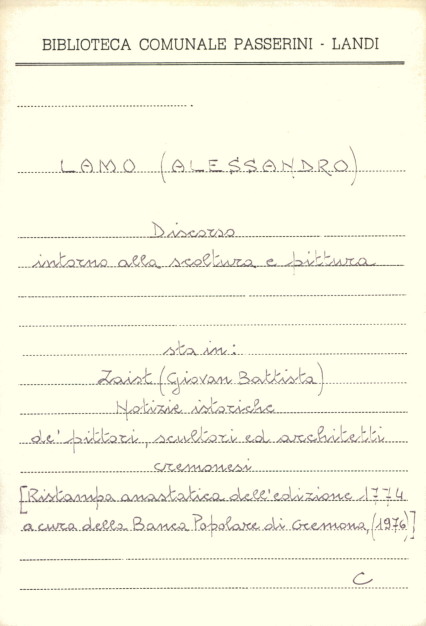 BIBLIOTECA COMUNALE PASSERINI - LANDI
LAMO (ALESSANDRO)
Discorso
intorno alla scoltura e pittura
sta in:
Zaist (Giovan Battista)
Notizie istoriche
de' pittori, scultori ed architetti
cremonesi
[Ristampa anastatica dell'edizione 1774
a cura della Banca Popolare di Cremona, (1976)]
C